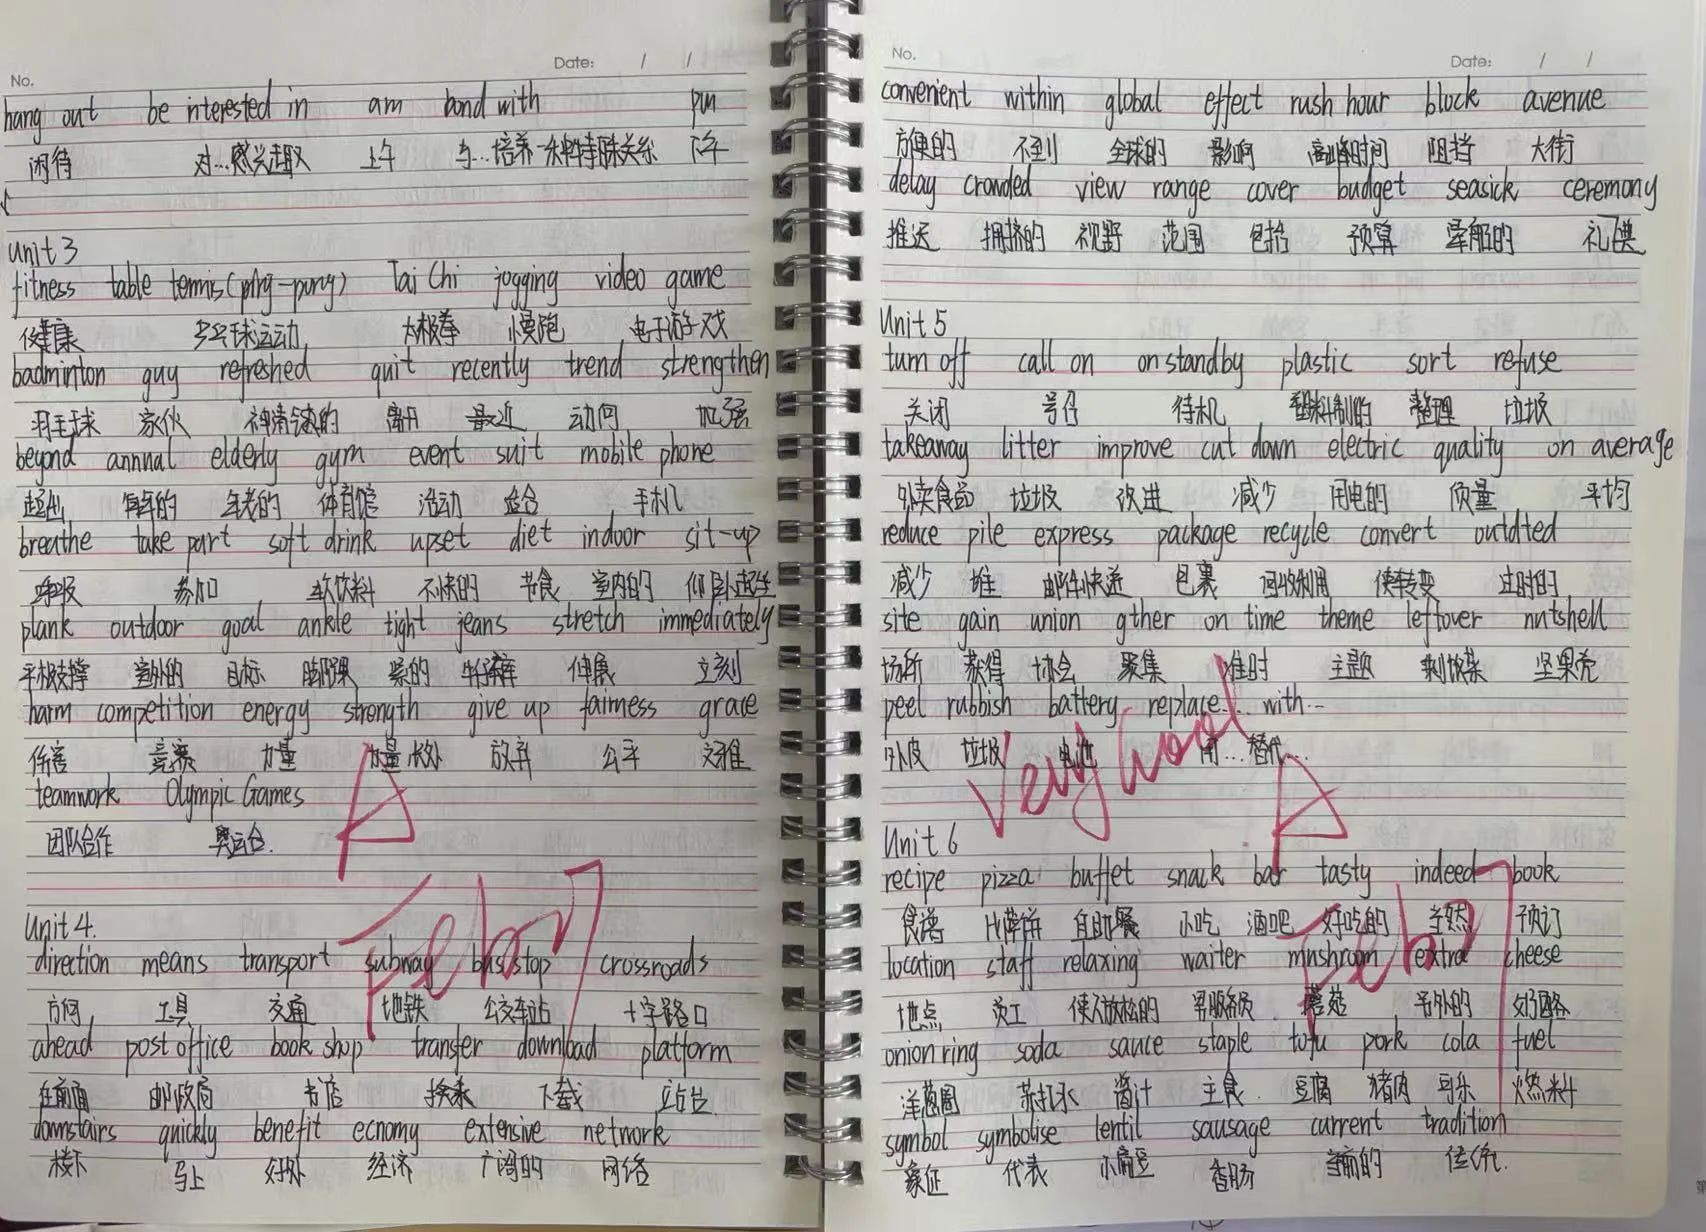 No.
Date: / /
hang out be interested in am bond with pm
闲待 对…感兴趣 上午 与…培养一种特殊关系 下午
Unit 3
fitness table tennis(ping-pong) Tai Chi jogging video game
健康 乒乓球运动 太极拳 慢跑 电子游戏
badminton guy refreshed quit recently trend strengthen
羽毛球 家伙 神清气爽的 离开 最近 动向 加强
beyond annual elderly gym event suit mobile phone
超出 每年的 年老的 体育馆 活动 适合 手机
breathe take part soft drink upset diet indoor sit-up
呼吸 参加 软饮料 不快的 节食 室内的 仰卧起坐
plank outdoor goal ankle tight jeans stretch immediately
平板支撑 室外的 目标 脚踝 紧的 牛仔裤 伸展 立刻
harm competition energy strength give up fairness grace
伤害 竞赛 力量 力量 长处 放弃 公平 文雅
teamwork Olympic Games
团队合作 奥运会.
A
Feb 7
Unit 4.
direction means transport subway bus stop crossroads
方向 工具 交通 地铁 公交车站 十字路口
ahead post office book shop transfer download platform
在前面 邮政局 书店 换乘 下载 站台
downstairs quickly benefit ecnomy extensive network
楼下 马上 好处 经济 广阔的 网络
No.
Date: / /
convenient within global effect rush hour block avenue
方便的 不到 全球的 影响 高峰时间 阻挡 大街
delay crowded view range cover budget seasick ceremony
推迟 拥挤的 视野 范围 包括 预算 晕船的 礼典
Unit 5
turn off call on on standby plastic sort refuse
关闭 号召 待机 塑料制的 整理 垃圾
takeaway litter improve cut down electric quality on average
外卖食品 垃圾 改进 减少 用电的 质量 平均
reduce pile express package recycle convert outdted
减少 堆 邮件快递 包裹 回收利用 使转变 过时的
site gain union gther on time theme leftover nutshell
场所 获得 协会 聚集 准时 主题 剩饭菜 坚果壳
peel rubbish battery replace… with…
外皮 垃圾 电池 用…替代…
Very Good
A
Feb 7
Unit 6
recipe pizza buffet snack bar tasty indeed book
食谱 比萨饼 自助餐 小吃 酒吧 好吃的 当然 预订
location staff relaxing waiter mushroom extra cheese
地点 员工 使人放松的 男服务员 蘑菇 另外的 奶酪
onion ring soda sauce staple tofu pork cola fuel
洋葱圈 苏打水 酱汁 主食 豆腐 猪肉 可乐 燃料
symbol symbolise lentil sausage current tradition
象征 代表 小扁豆 香肠 当前的 传统.